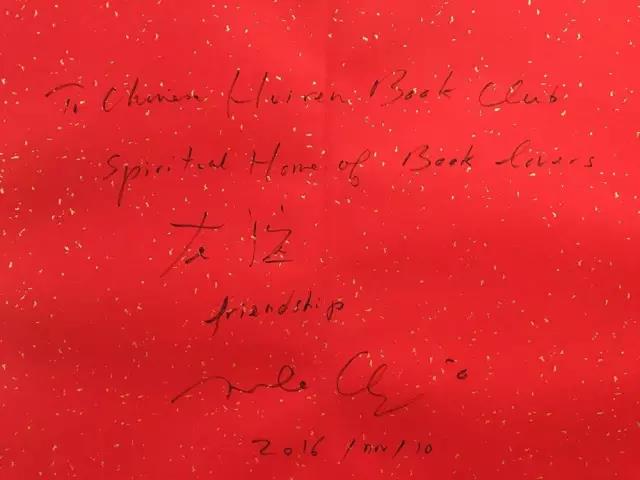 To Chinese Huiren Book Club
Spiritual Home of Book lovers
友谊
friendship
2016/nov/10